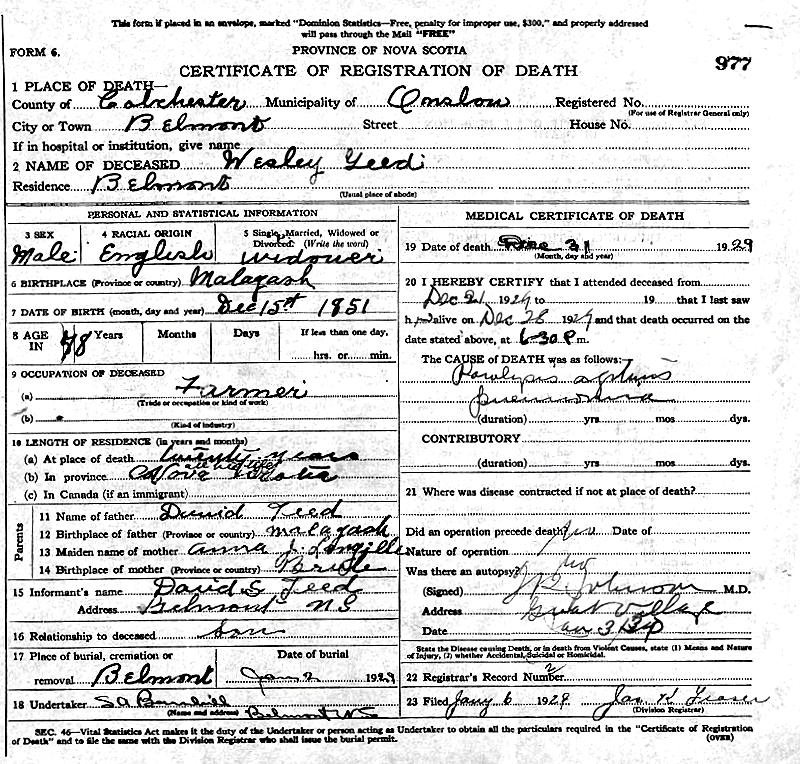 This form if placed in an envelope, marked "Dominion Statistics—Free, penalty for improper use, $300," and properly addressed
will pass through the Mail "FREE"
FORM 6.
PROVINCE OF NOVA SCOTIA
CERTIFICATE OF REGISTRATION OF DEATH
977
1 PLACE OF DEATH—
County of Colchester Municipality of Onslow Registered No.
(For use of Registrar General only)
City or Town Belmont Street House No.
If in hospital or institution, give name
2 NAME OF DECEASED Wesley Teed
Residence Belmont
(Usual place of abode)
PERSONAL AND STATISTICAL INFORMATION
3 SEX 4 RACIAL ORIGIN 5 Single, Married, Widowed or
Divorced. (Write the word)
Male English widower
6 BIRTHPLACE (Province or country) Malagash
7 DATE OF BIRTH (month, day and year) Dec 15st 1851
8 AGE IN 78 Years Months Days If less than one day,
hrs. or min.
9 OCCUPATION OF DECEASED
(a) Farmer
(Trade or occupation or kind of work)
(b)
(Kind of industry)
10 LENGTH OF RESIDENCE (in years and months)
(a) At place of death twenty years
all his life
(b) In province Nova Scotia
(c) In Canada (if an immigrant)
Parents
11 Name of father David Teed
12 Birthplace of father (Province or country) Malagash
13 Maiden name of mother Anna J. Langille
14 Birthplace of mother (Province or country)
15 Informant's name David S Teed
Address Belmont NS
16 Relationship to deceased Son
17 Place of burial, cremation or Date of burial
removal Belmont Jan 2 1929
18 Undertaker S A
(Name and address) Belmont NS
MEDICAL CERTIFICATE OF DEATH
19 Date of death Dec 31 1929
(Month, day and year)
20 I HEREBY CERTIFY that I attended deceased from
Dec 21 1929 to 19 that I last saw
him alive on Dec 28 1929 and that death occurred on the
date stated above, at 6-30 P m.
The CAUSE of DEATH was as follows:
Paralysis agitans
pneumonia
(duration) yrs mos dys.
CONTRIBUTORY
(duration) yrs mos dys.
21 Where was disease contracted if not at place of death?
Did an operation precede death? Date of
Nature of operation
Was there an autopsy? no
(Signed) Johnson M.D.
Address Great Village
Date Jan 3/30
State the Disease causing Death, or in death from Violent Causes, state (1) Means and Nature
of Injury, (2) whether Accidental, Suicidal or Homicidal.
22 Registrar's Record Number 2
23 Filed Jany 6 1929 Jas K Fraser
(Division Registrar)
SEC. 46—Vital Statistics Act makes it the duty of the Undertaker or person acting as Undertaker to obtain all the particulars required in the "Certificate of Registration
of Death" and to file the same with the Division Registrar who shall issue the burial permit.
(OVER)